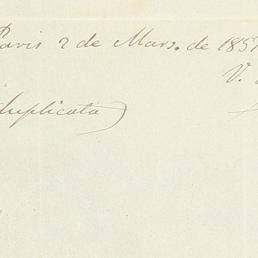 Paris 2 de Marz. de 1857
V.
duplicata)